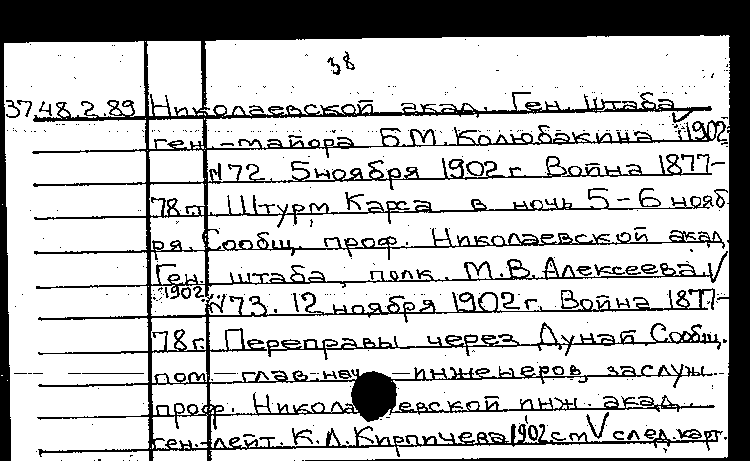 38
37.48.2.89 Николаевской акад. Ген. штаба
ген.-майора Б.М. Колюбакина 1902
№72. 5 ноября 1902 г. Война 1877-
78 гг. Штурм Карса в ночь 5-6 нояб
ря. Сообщ. проф. Николаевской акад.
Ген. штаба, полк. М.В. Алексеева. √
1902 №73. 12 ноября 1902 г. Война 1877-
78 г. Переправы через Дунай. Сообщ.
пом. глав. нач. инженеров, заслуж.
проф. Николаевской инж. акад.
ген.-лейт. К.Л. Кирпичева 1902 см √ след. карт.